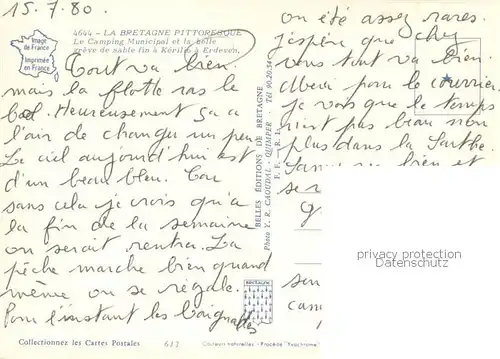 15.7.80.
Image
de France
Imprimée
en France
4644 - LA BRETAGNE PITTORESQUE
Le Camping Municipal et la belle
grève de sable fin à Kérillio à Erdeven.
Tout va bien.
mais la flotte ras le
bol. Heureusement ça a
l'air de changer un peu
Le ciel aujourd'hui est
d'un beau bleu.
sans cela je crois qu'à
la fin de la semaine
on serait rentré. La
pêche marche bien quand
même on se régale.
Pour l'instant les baignades
on été assez rares.
j'espère que chez
vous tout va bien.
Merci pour le courrier
je vois que le temps
n'est pas beau non
plus dans la Sarthe.
bien et
se r
BELLES ÉDITIONS DE BRETAGNE
Photo Y. R. CAOUDAL - QUIMPER - Tél 90.20.54
BRETAGNE
privacy protection
Datenschutz
Collectionnez les Cartes Postales
617
Couleurs naturelles - Procédé "Polychrome"